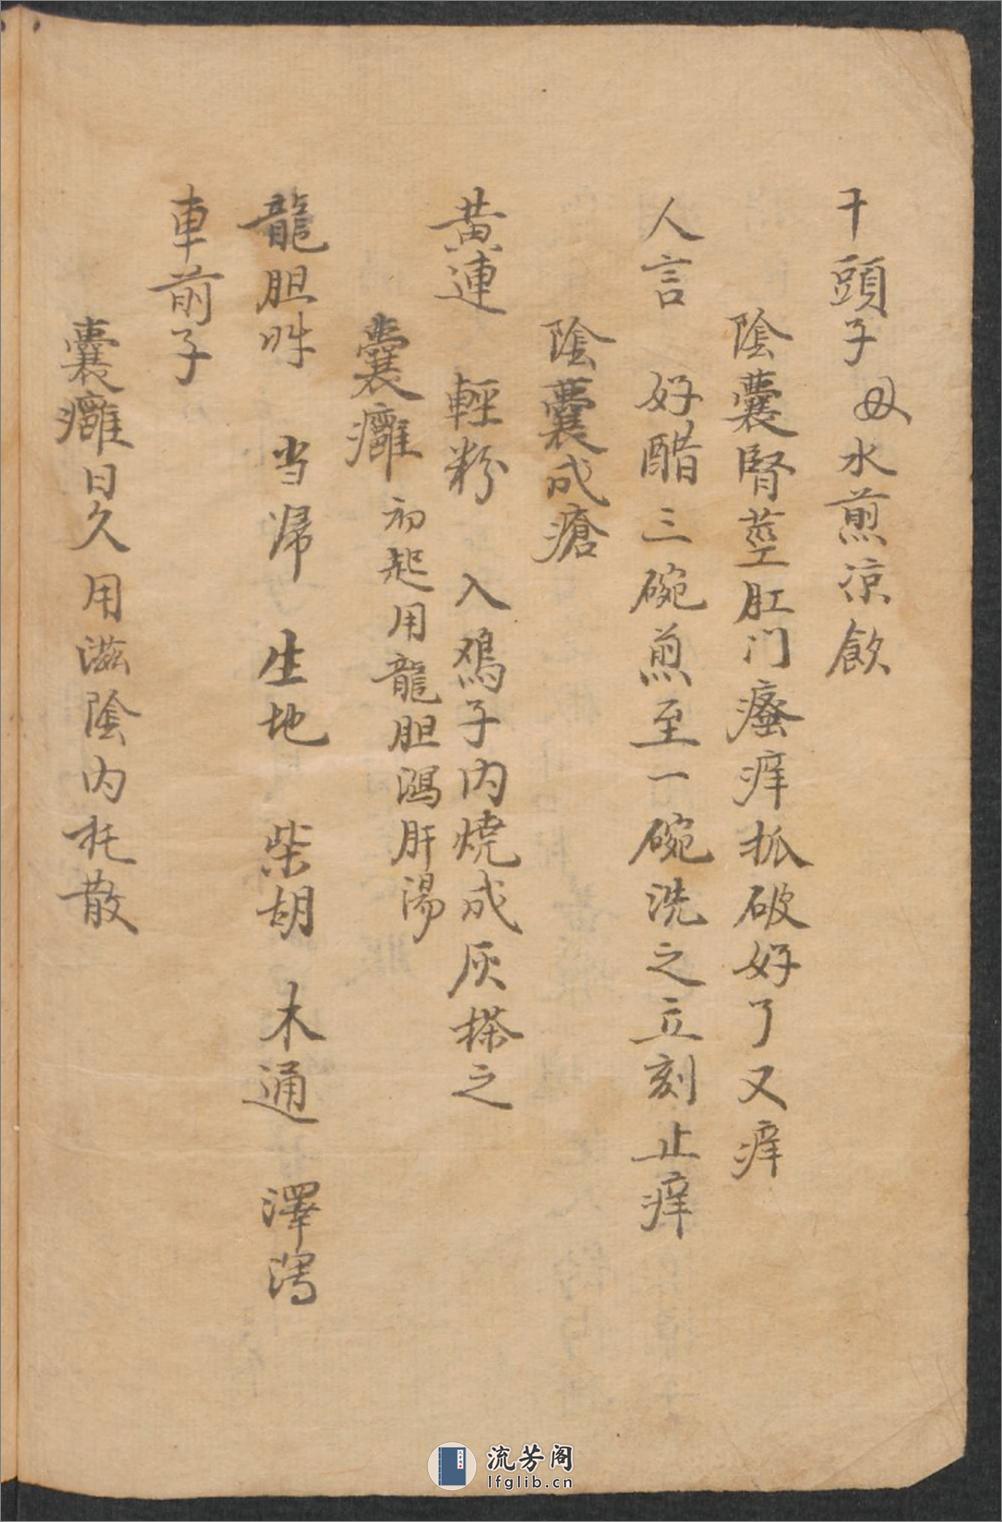 干頭子 母水煎凉飲
陰囊腎莖肛门瘙痒抓破好了又痒
人言 好醋三碗煎至一碗洗之立刻止痒
陰囊成瘡
黄連 輕粉 入鸡子内燒成灰搽之
囊癰 初起用龍胆瀉肝湯
龍胆草 当归 生地 柴胡 木通 澤瀉
車前子
囊癰日久用滋陰内托散
流芳阁
lfglib.cn